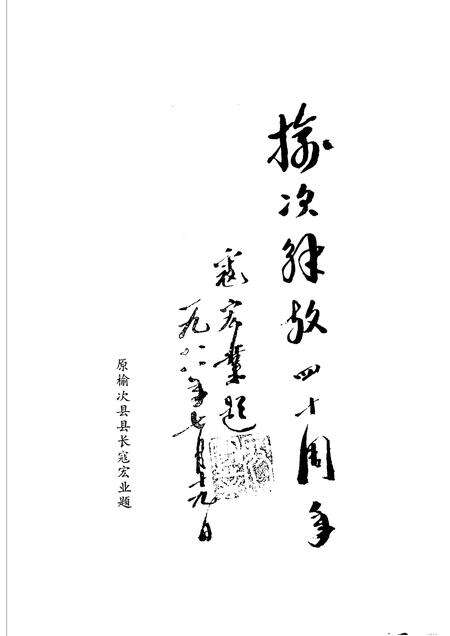 榆次解放四十周年
寇宏业题
一九八八年七月十九日
原榆次县县长寇宏业题